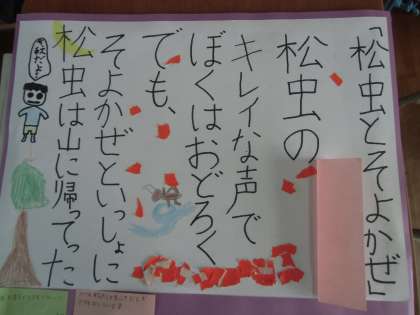 「松虫とそよかぜ」
松虫の
キレイな声で
ぼくはおどろく
でも、
そよかぜといっしょに
松虫は山に帰ってった